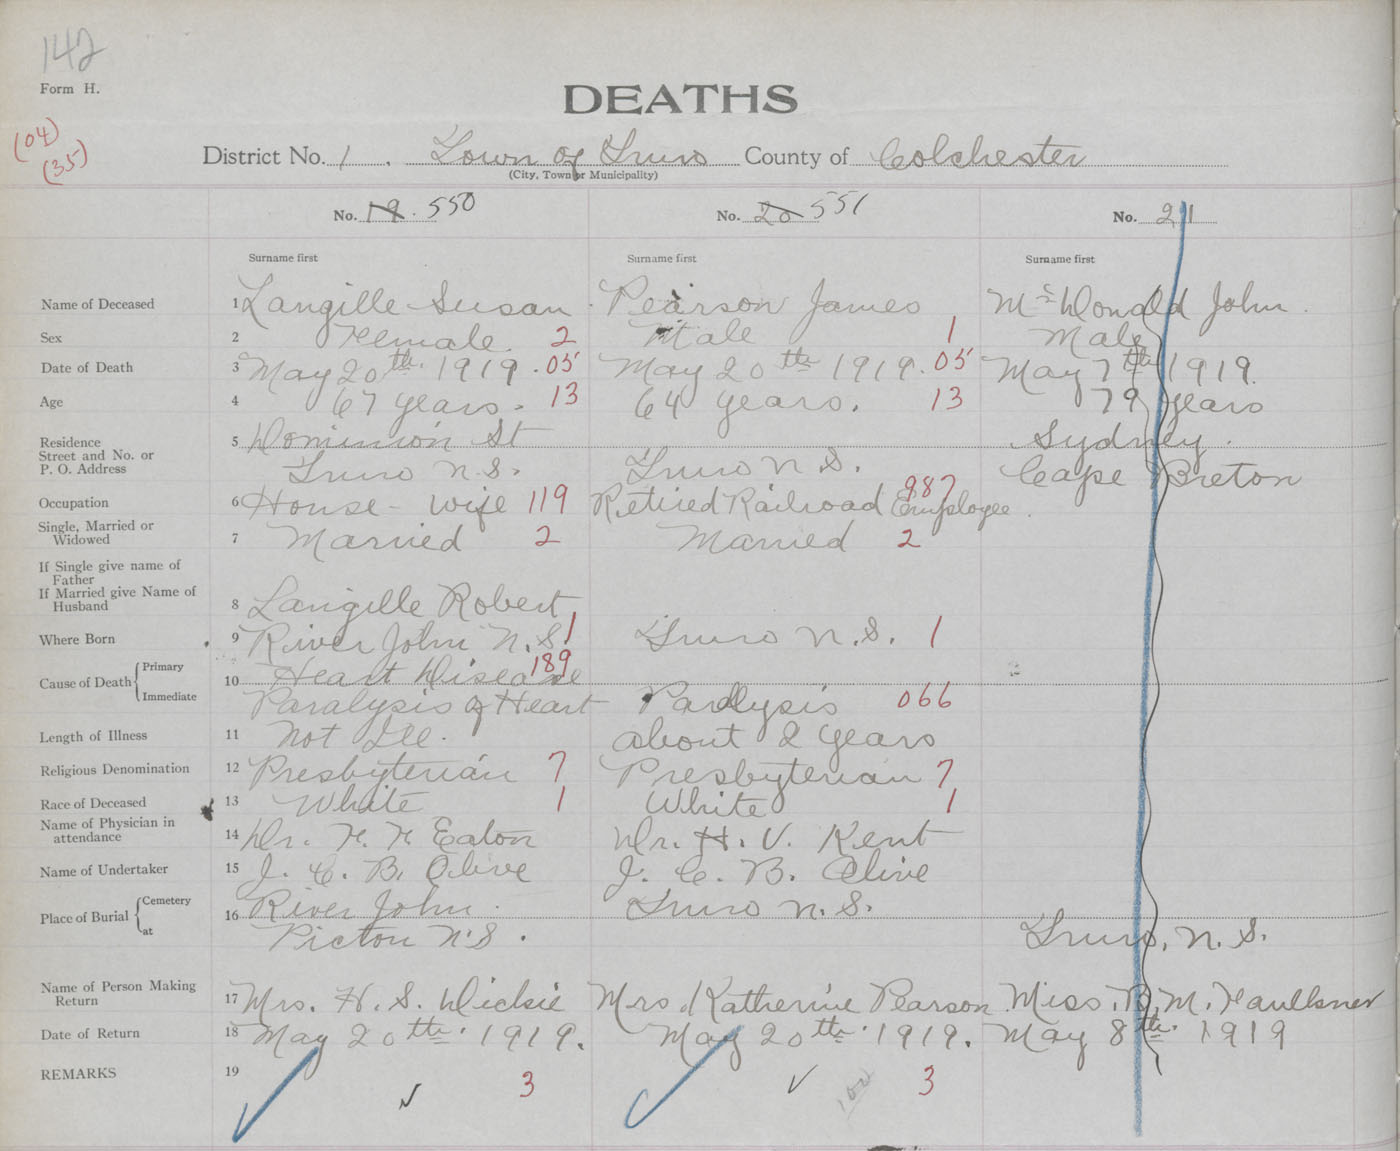 142
Form H.
DEATHS
(04)
(35)
District No. 1. Town of Truro County of Colchester
(City, Town or Municipality)
No. 19. 550 No. 20 551 No. 21
Surname first Surname first Surname first
Name of Deceased 1 Langille Susan Pearson James McDonald John
Sex 2 Female 2 Male 1 Male
Date of Death 3 May 20th 1919. 05 May 20th 1919. 05 May 7th 1919
Age 4 67 years. 13 64 years. 13 79 years
Residence 5 Dominion St Sydney.
Street and No. or
P. O. Address Truro N.S. Truro N.S. Cape Breton
Occupation 6 House-wife 119 Retired Railroad Employee. 987
Single, Married or
Widowed 7 Married 2 Married 2
If Single give name of
Father
If Married give Name of
Husband 8 Langille Robert
Where Born 9 River John N.S. 1 Truro N.S. 1
Cause of Death Primary 10 Heart Disease 189
Immediate Paralysis of Heart Paralysis 066
Length of Illness 11 Not Ill. about 2 years
Religious Denomination 12 Presbyterian 7 Presbyterian 7
Race of Deceased 13 White 1 White 1
Name of Physician in
attendance 14 Dr. F. F. Eaton Dr. H. V. Kent
Name of Undertaker 15 J. C. B. Olive J. C. B. Olive
Place of Burial Cemetery 16 River John. Truro N.S.
at Picton N.S. Truro, N.S.
Name of Person Making
Return 17 Mrs. H. S. Dickie Mrs Katherine Pearson Miss. B. M. Faulkner
Date of Return 18 May 20th. 1919. May 20th. 1919. May 8th. 1919
REMARKS 19 3 100 3